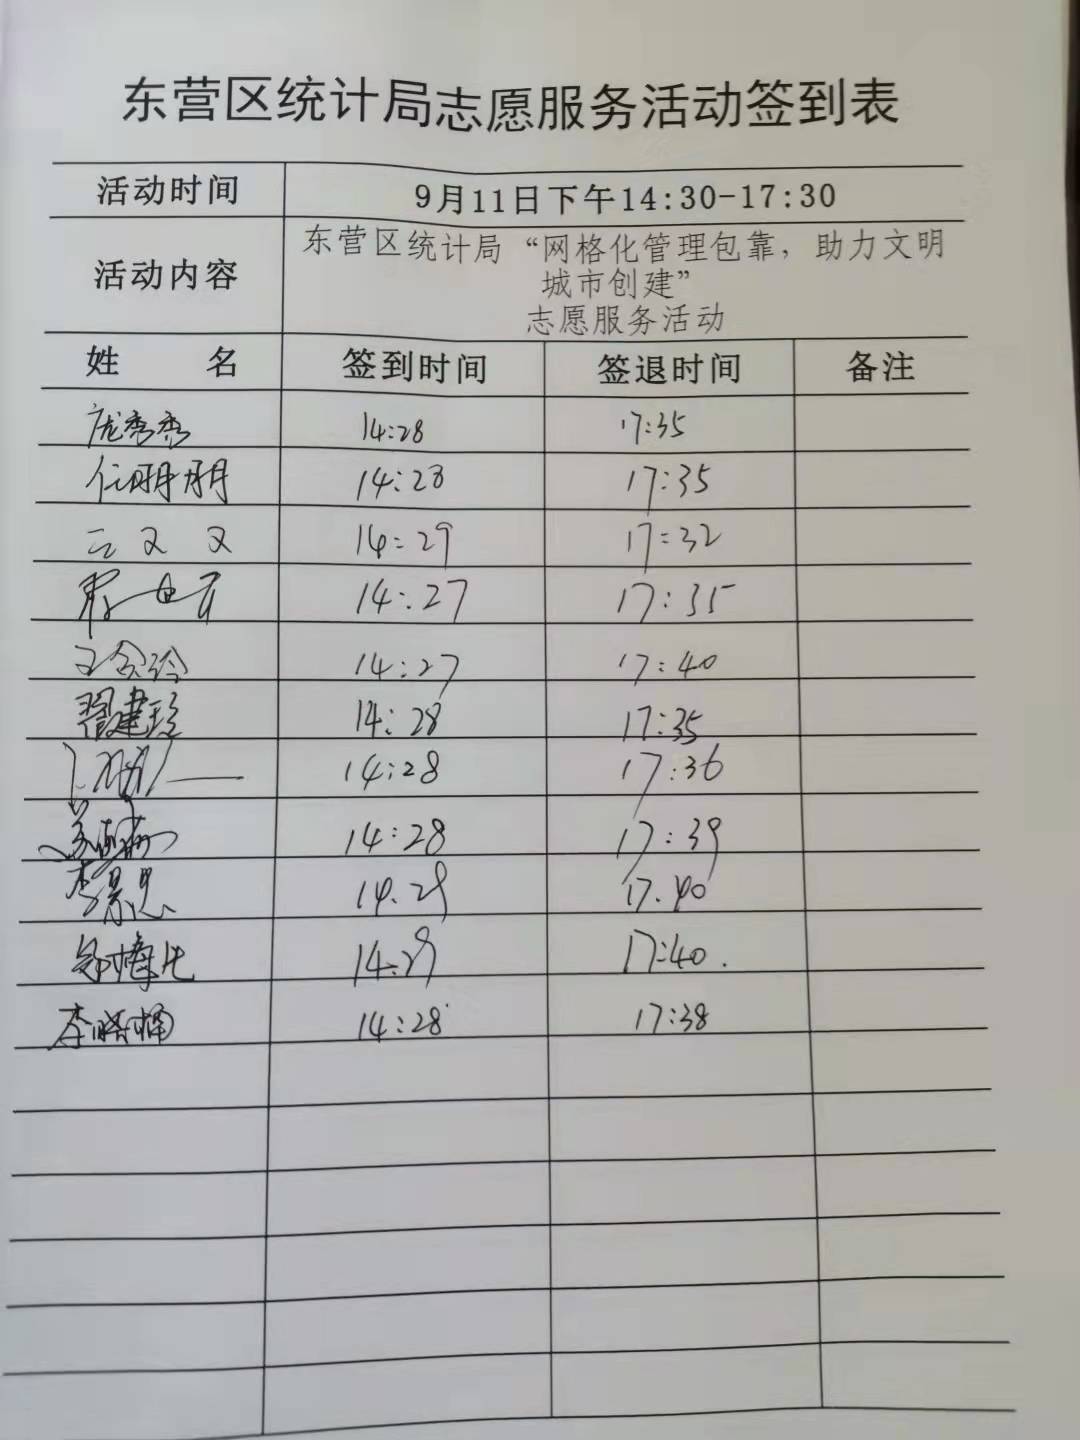 东营区统计局志愿服务活动签到表
活动时间 9月11日下午14:30-17:30
活动内容 东营区统计局“网格化管理包靠，助力文明
城市创建”
志愿服务活动
姓 名 签到时间 签退时间 备注
庞秀秀 14:28 17:35
任朋朋 14:28 17:35
14:29 17:32
14:27 17:35
14:27 17:40
翟建珍 14:28 17:35
14:28 17:36
14:28 17:39
李景思 14.29 17.40
14:29 17:40.
李晓楠 14:28 17:38